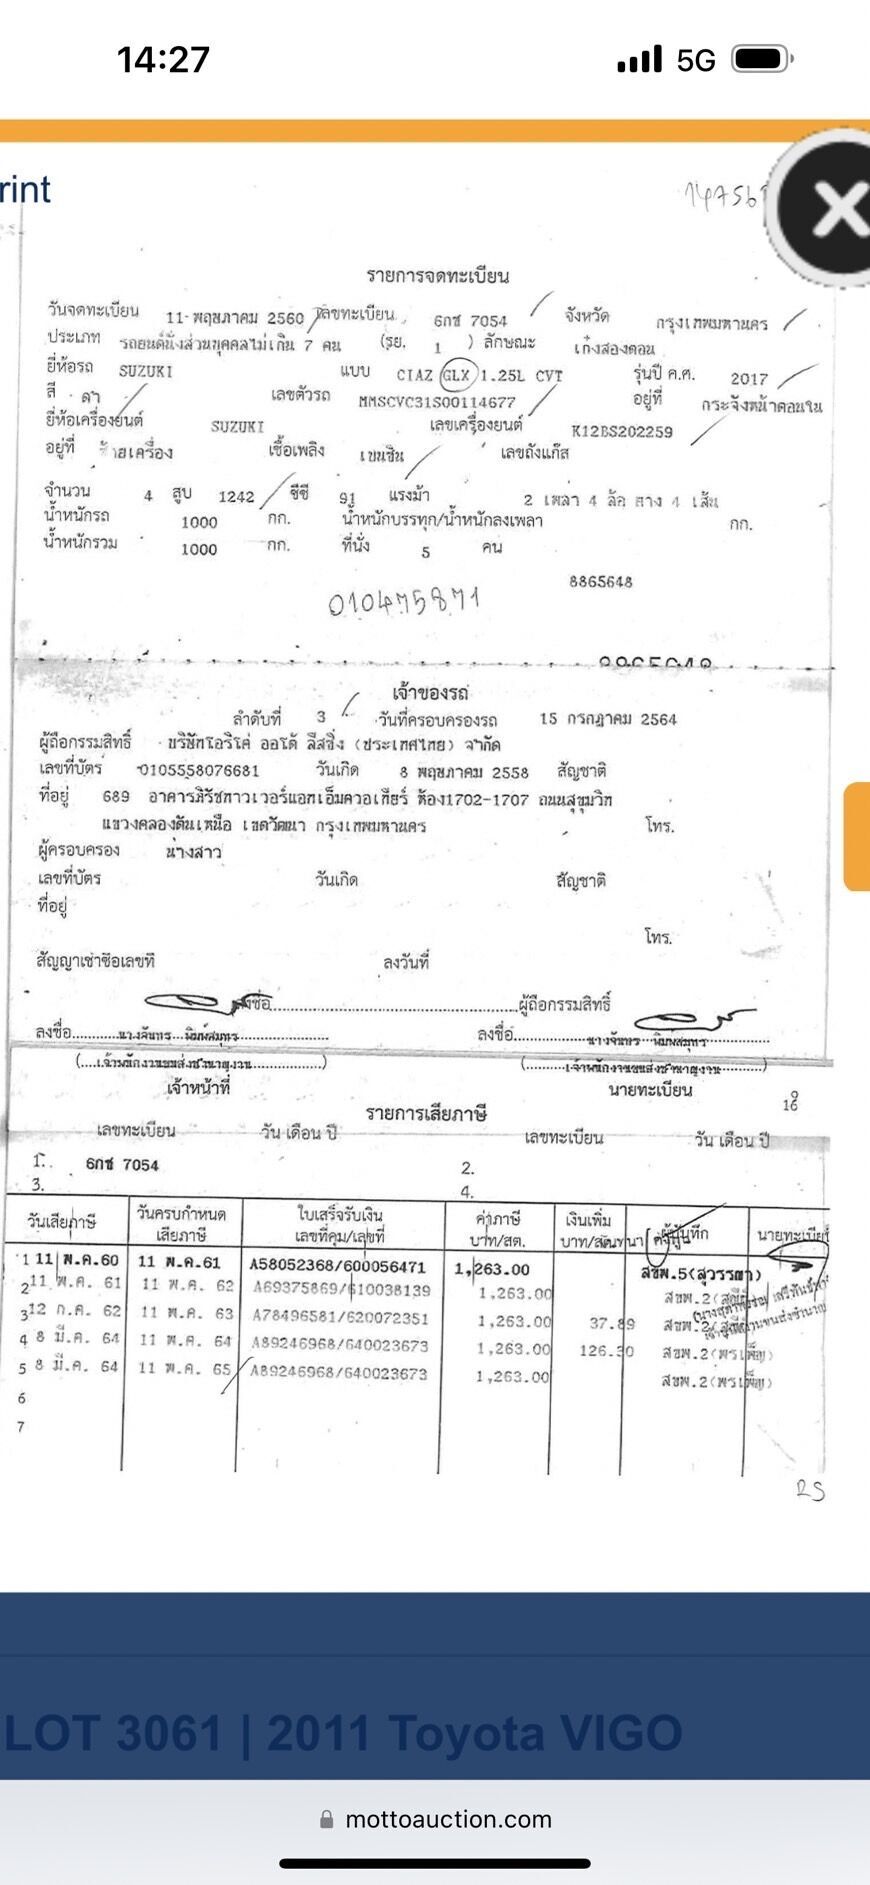 14:27
5G
rint
รายการจดทะเบียน
วันจดทะเบียน 11 พฤษภาคม 2560 เลขทะเบียน 6กช 7054 จังหวัด กรุงเทพมหานคร
ประเภท รถยนต์นั่งส่วนบุคคลไม่เกิน 7 คน (รย. 1 ) ลักษณะ เก๋งสองตอน
ยี่ห้อรถ SUZUKI แบบ CIAZ GLX 1.25L CVT รุ่นปี ค.ศ. 2017
สี ดำ เลขตัวรถ MMSCVC31S00114677 อยู่ที่ กระจังหน้าตอนใน
ยี่ห้อเครื่องยนต์ SUZUKI เลขเครื่องยนต์ K12BS202259
อยู่ที่ ซ้ายเครื่อง เชื้อเพลิง เบนซิน เลขถังแก๊ส
จำนวน 4 สูบ 1242 ซีซี 91 แรงม้า 2 เพลา 4 ล้อ ยาง 4 เส้น
น้ำหนักรถ 1000 กก. น้ำหนักบรรทุก/น้ำหนักลงเพลา กก.
น้ำหนักรวม 1000 กก. ที่นั่ง 5 คน
8865648
010475871
เจ้าของรถ
ลำดับที่ 3 วันที่ครอบครองรถ 15 กรกฎาคม 2564
ผู้ถือกรรมสิทธิ์ บริษัทโอริโค่ ออโต้ ลีสซิ่ง (ประเทศไทย) จำกัด
เลขที่บัตร 0105558076681 วันเกิด 8 พฤษภาคม 2558 สัญชาติ
ที่อยู่ 689 อาคารภิรัชทาวเวอร์แอทเอ็มควอเทียร์ ห้อง1702-1707 ถนนสุขุมวิท
แขวงคลองตันเหนือ เขตวัฒนา กรุงเทพมหานคร โทร.
ผู้ครอบครอง นางสาว
เลขที่บัตร วันเกิด สัญชาติ
ที่อยู่
โทร.
สัญญาเช่าซื้อเลขที่ ลงวันที่
ลงชื่อ ผู้ถือกรรมสิทธิ์
ลงชื่อ นางจันทร พิมพ์สมุทร ลงชื่อ นางจันทร พิมพ์สมุทร
(เจ้าพนักงานขนส่งชำนาญงาน) (เจ้าพนักงานขนส่งชำนาญงาน)
เจ้าหน้าที่ นายทะเบียน
16
รายการเสียภาษี
เลขทะเบียน วัน เดือน ปี เลขทะเบียน วัน เดือน ปี
1. 6กช 7054 2.
3. 4.
วันเสียภาษี วันครบกำหนด เสียภาษี ใบเสร็จรับเงิน เลขที่คุม/เลขที่ ค่าภาษี บาท/สต. เงินเพิ่ม บาท/สต. ผู้บันทึก นายทะเบียน
1 11 พ.ค.60 11 พ.ค.61 A58052368/600056471 1,263.00 สขพ.5(สุวรรณา)
2 11 พ.ค. 61 11 พ.ค. 62 A69375869/610038139 1,263.00 สขพ.2
3 12 ก.ค. 62 11 พ.ค. 63 A78496581/620072351 1,263.00 37.89 สขพ.2
4 8 มี.ค. 64 11 พ.ค. 64 A89246968/640023673 1,263.00 126.30 สขพ.2(พรเพ็ญ)
5 8 มี.ค. 64 11 พ.ค. 65 A89246968/640023673 1,263.00 สขพ.2(พรเพ็ญ)
6
7
RS
LOT 3061 | 2011 Toyota VIGO
mottoauction.com